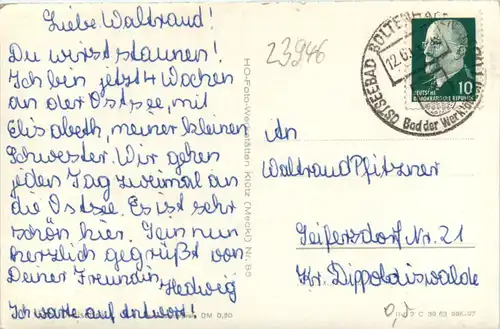 Liebe Waltraud!
Du wirst staunen!
Ich bin jetzt 4 Wochen
an der Ostsee, mit
Elisabeth, meiner kleinen
Schwester. Wir gehen
jeden Tag zweimal an
die Ostsee. Es ist sehr
schön hier. Sein nun
herzlich gegrüßt von
Deiner Freundin
Hedwig
Ich warte auf Antwort!
DM 0,20
HO-Foto-Werkstätten Klütz (Meckl) Nr. 85
23946
OSTSEEBAD BOLTENHAGEN
12.6
Bad der Werktätigen
10
DEUTSCHE
DEMOKRATISCHE REPUBLIK
An
Waltraud Pfitzner
Seifersdorf Nr. 21
Kr. Dippoldiswalde